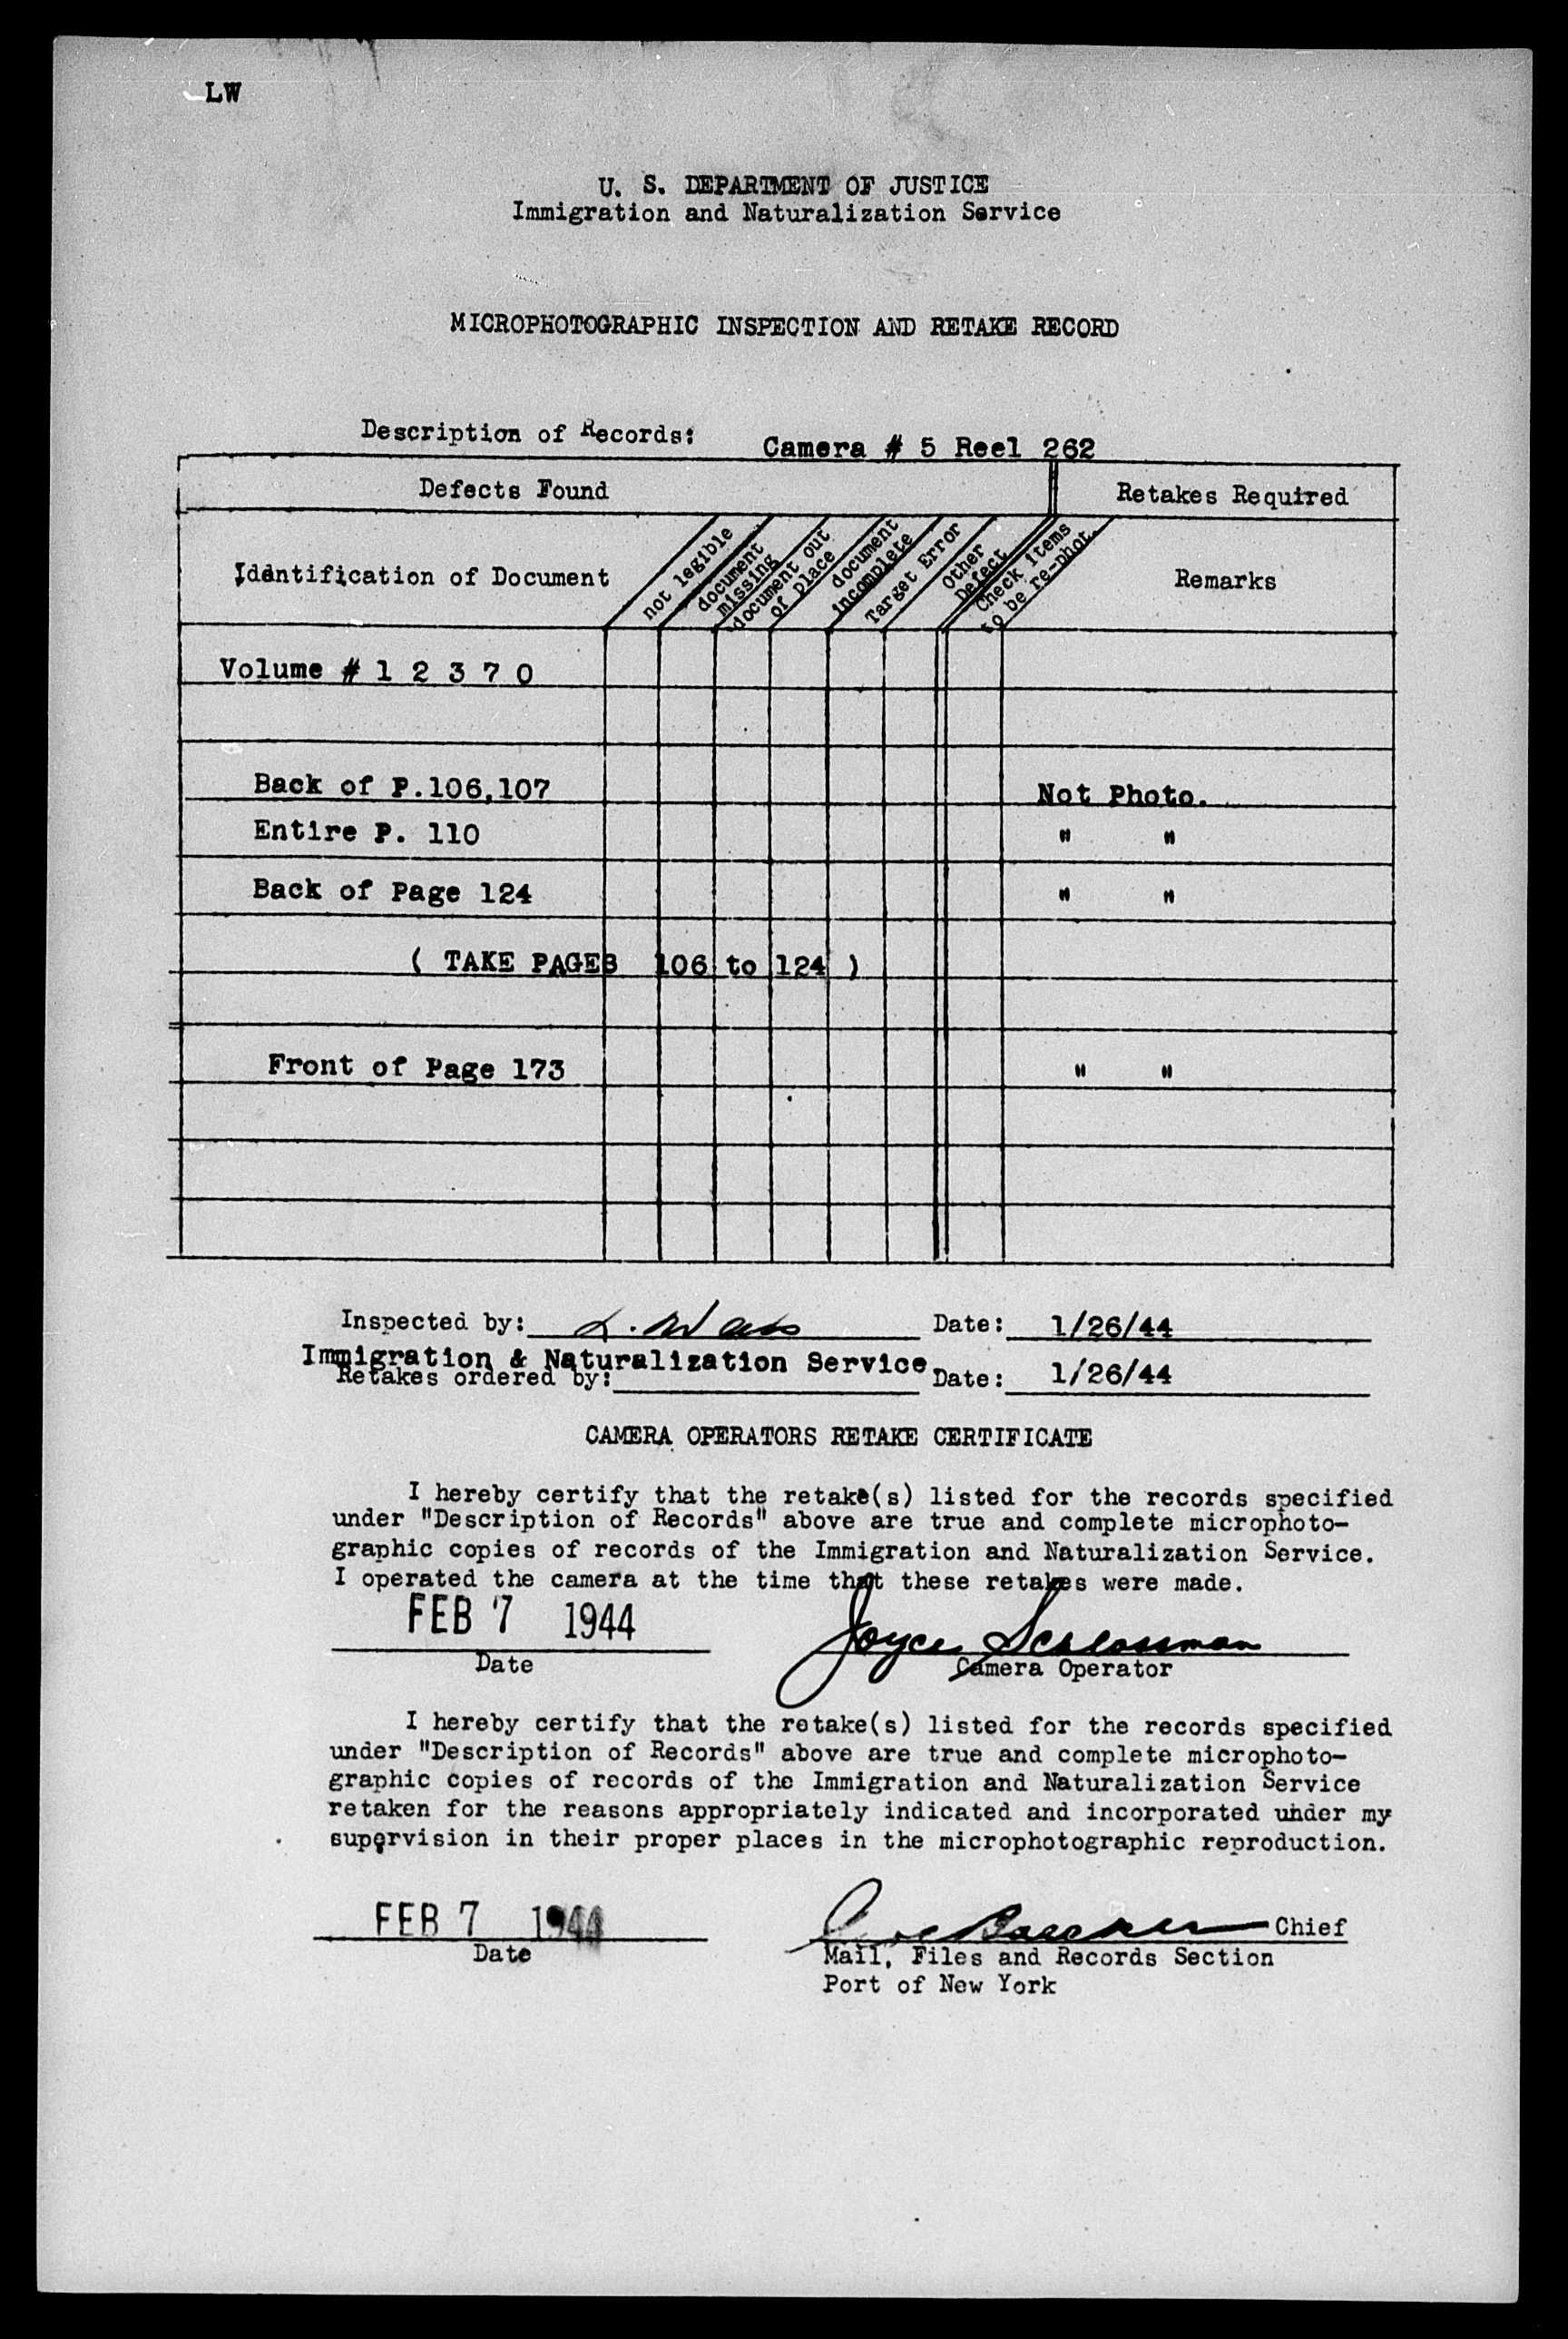 LW
U. S. DEPARTMENT OF JUSTICE
Immigration and Naturalization Service
MICROPHOTOGRAPHIC INSPECTION AND RETAKE RECORD
Description of Records: Camera # 5 Reel 262
Defects Found Retakes Required
Identification of Document
not legible
document missing
document out of place
document incomplete
Target Error
Other Defect
Check items to be re-phot.
Remarks
Volume # 1 2 3 7 0
Back of P.106,107 Not Photo.
Entire P. 110 " "
Back of Page 124 " "
( TAKE PAGES 106 to 124 )
Front of Page 173 " "
Inspected by: L. Wass Date: 1/26/44
Immigration & Naturalization Service
Retakes ordered by: Date: 1/26/44
CAMERA OPERATORS RETAKE CERTIFICATE
I hereby certify that the retake(s) listed for the records specified
under "Description of Records" above are true and complete microphoto-
graphic copies of records of the Immigration and Naturalization Service.
I operated the camera at the time that these retakes were made.
FEB 7 1944 Joyce Schlossman
Date Camera Operator
I hereby certify that the retake(s) listed for the records specified
under "Description of Records" above are true and complete microphoto-
graphic copies of records of the Immigration and Naturalization Service
retaken for the reasons appropriately indicated and incorporated under my
supervision in their proper places in the microphotographic reproduction.
FEB 7 1944 Chief
Date Mail, Files and Records Section
Port of New York